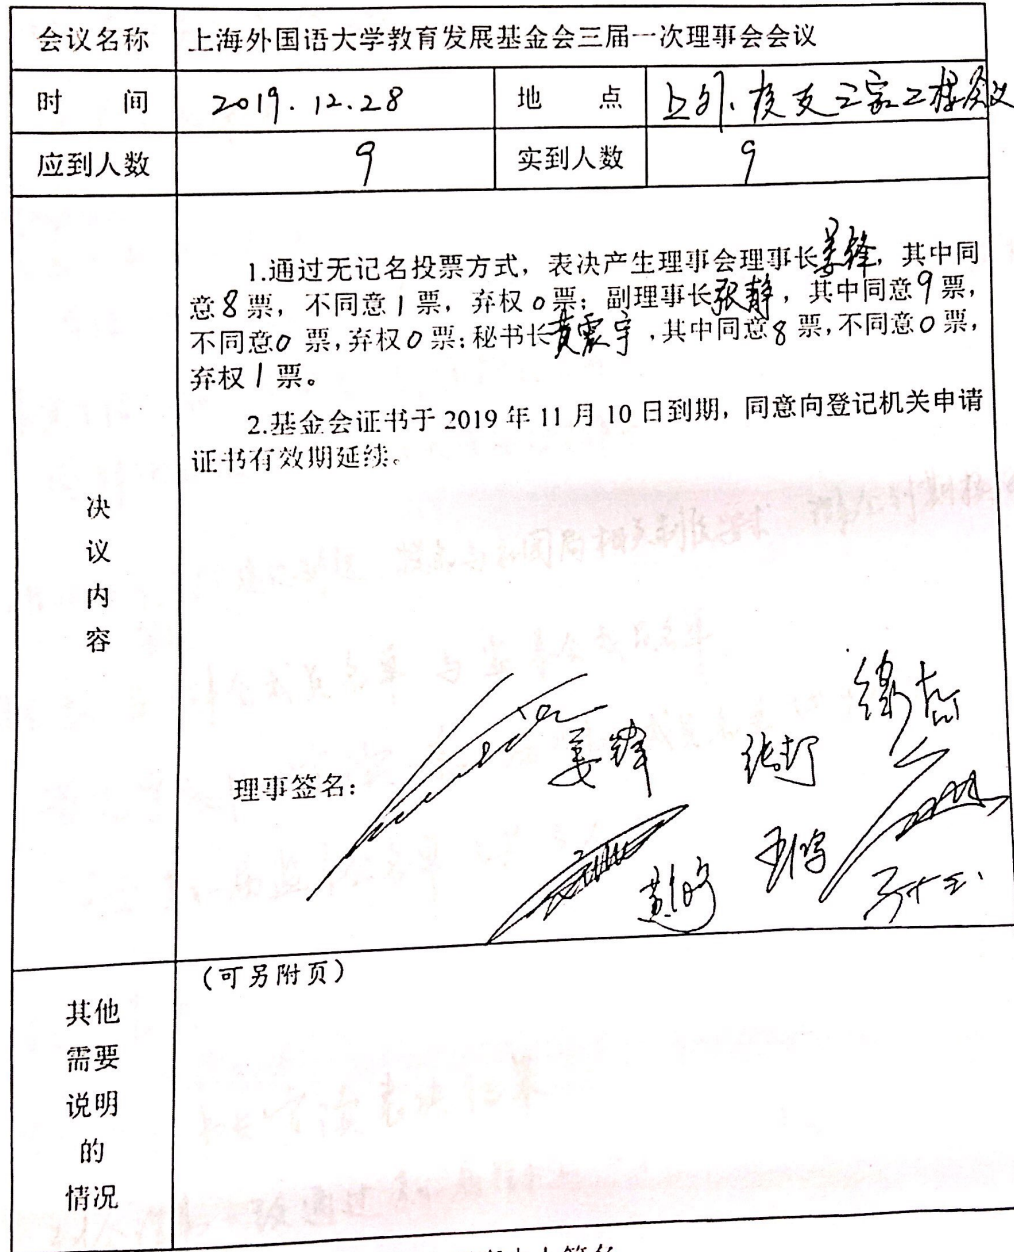 会议名称 上海外国语大学教育发展基金会三届一次理事会会议
时 间 2019.12.28 地 点 上外.校友之家二楼会议
应到人数 9 实到人数 9
决议内容
1.通过无记名投票方式，表决产生理事会理事长姜锋，其中同
意8票，不同意1票，弃权0票；副理事长张静，其中同意9票，
不同意0票，弃权0票；秘书长黄震宇，其中同意8票，不同意0票，
弃权1票。
2.基金会证书于 2019 年 11 月 10 日到期，同意向登记机关申请
证书有效期延续。
理事签名： 姜锋
其他需要说明的情况
（可另附页）